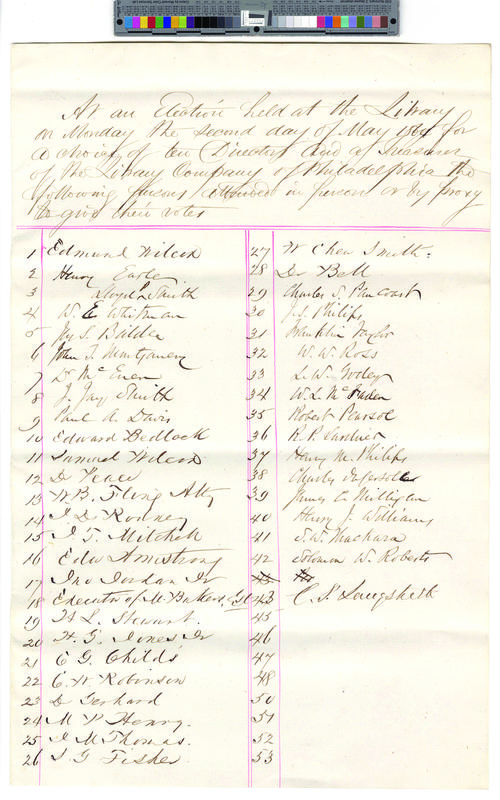 At an Election held at the Library
on Monday the second day of May 1864 for
a choice of ten Directors and a Treasurer
of the Library Company of Philadelphia the
following persons attended in person or by proxy
to give their votes
1 Edmund Wilcox
2 Henry Earle
3 Lloyd P. Smith
4 W. E. Whitman
5 Jos. S.
6 John T. Montgomery
7 Dr Mc Euen
8 J. Jay Smith
9 Paul A. Davis
10 Edward Bedlock
11 Samuel Wilcox
12 Dr Peace
13 W. B. Fling Atty
14 J. D. Rodney
15 J. T. Mitchell
16 Edw Armstrong
17 Jno Jordan Jr
18 Executor of M. Bakers
19 H L. Stewart
20 H. G. Jones Jr
21 C G. Childs
22 C. W. Robinson
23 B Gerhard
24 M P Henry.
25 J M Thomas.
26 J G Fisher
27 W Chew Smith.
28 Dr Bell
29 Charles S. Pancoast
30 J. S. Philips
31 Franklin Taylor
32 W. W. Ross
33 L. W.
34 W. L. McFaden
35 Robert Pearsol
36 R. P.
37 Henry M. Philips
38 Charles Ingersoll
39 James C. Milligan
40 Henry J. Williams
41 J. W. Mackara
42 Solomon W. Roberts
43 C. S.
45
46
47
48
50
51
52
53